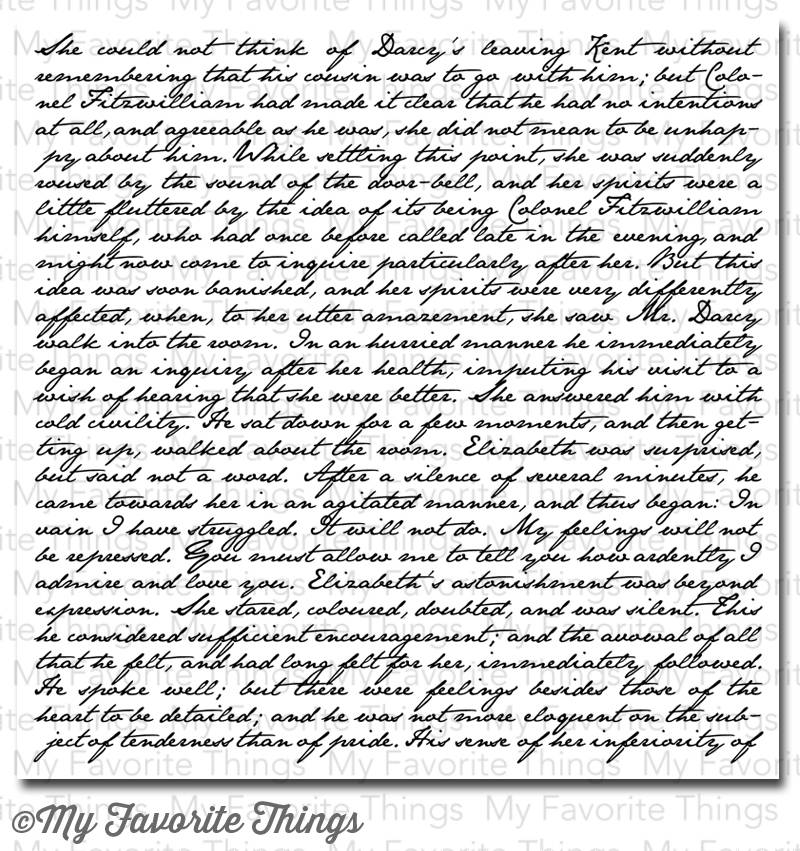 She could not think of Darcy's leaving Kent without
remembering that his cousin was to go with him; but Colo-
nel Fitzwilliam had made it clear that he had no intentions
at all, and agreeable as he was, she did not mean to be unhap-
py about him. While settling this point, she was suddenly
roused by the sound of the door-bell, and her spirits were a
little fluttered by the idea of its being Colonel Fitzwilliam
himself, who had once before called late in the evening, and
might now come to inquire particularly after her. But this
idea was soon banished, and her spirits were very differently
affected, when, to her utter amazement, she saw Mr. Darcy
walk into the room. In an hurried manner he immediately
began an inquiry after her health, imputing his visit to a
wish of hearing that she were better. She answered him with
cold civility. He sat down for a few moments, and then get-
ting up, walked about the room. Elizabeth was surprised,
but said not a word. After a silence of several minutes, he
came towards her in an agitated manner, and thus began: In
vain I have struggled. It will not do. My feelings will not
be repressed. You must allow me to tell you how ardently I
admire and love you. Elizabeth's astonishment was beyond
expression. She stared, coloured, doubted, and was silent. This
he considered sufficient encouragement; and the avowal of all
that he felt, and had long felt for her, immediately followed.
He spoke well; but there were feelings besides those of the
heart to be detailed; and he was not more eloquent on the sub-
ject of tenderness than of pride. His sense of her inferiority of
©My Favorite Things